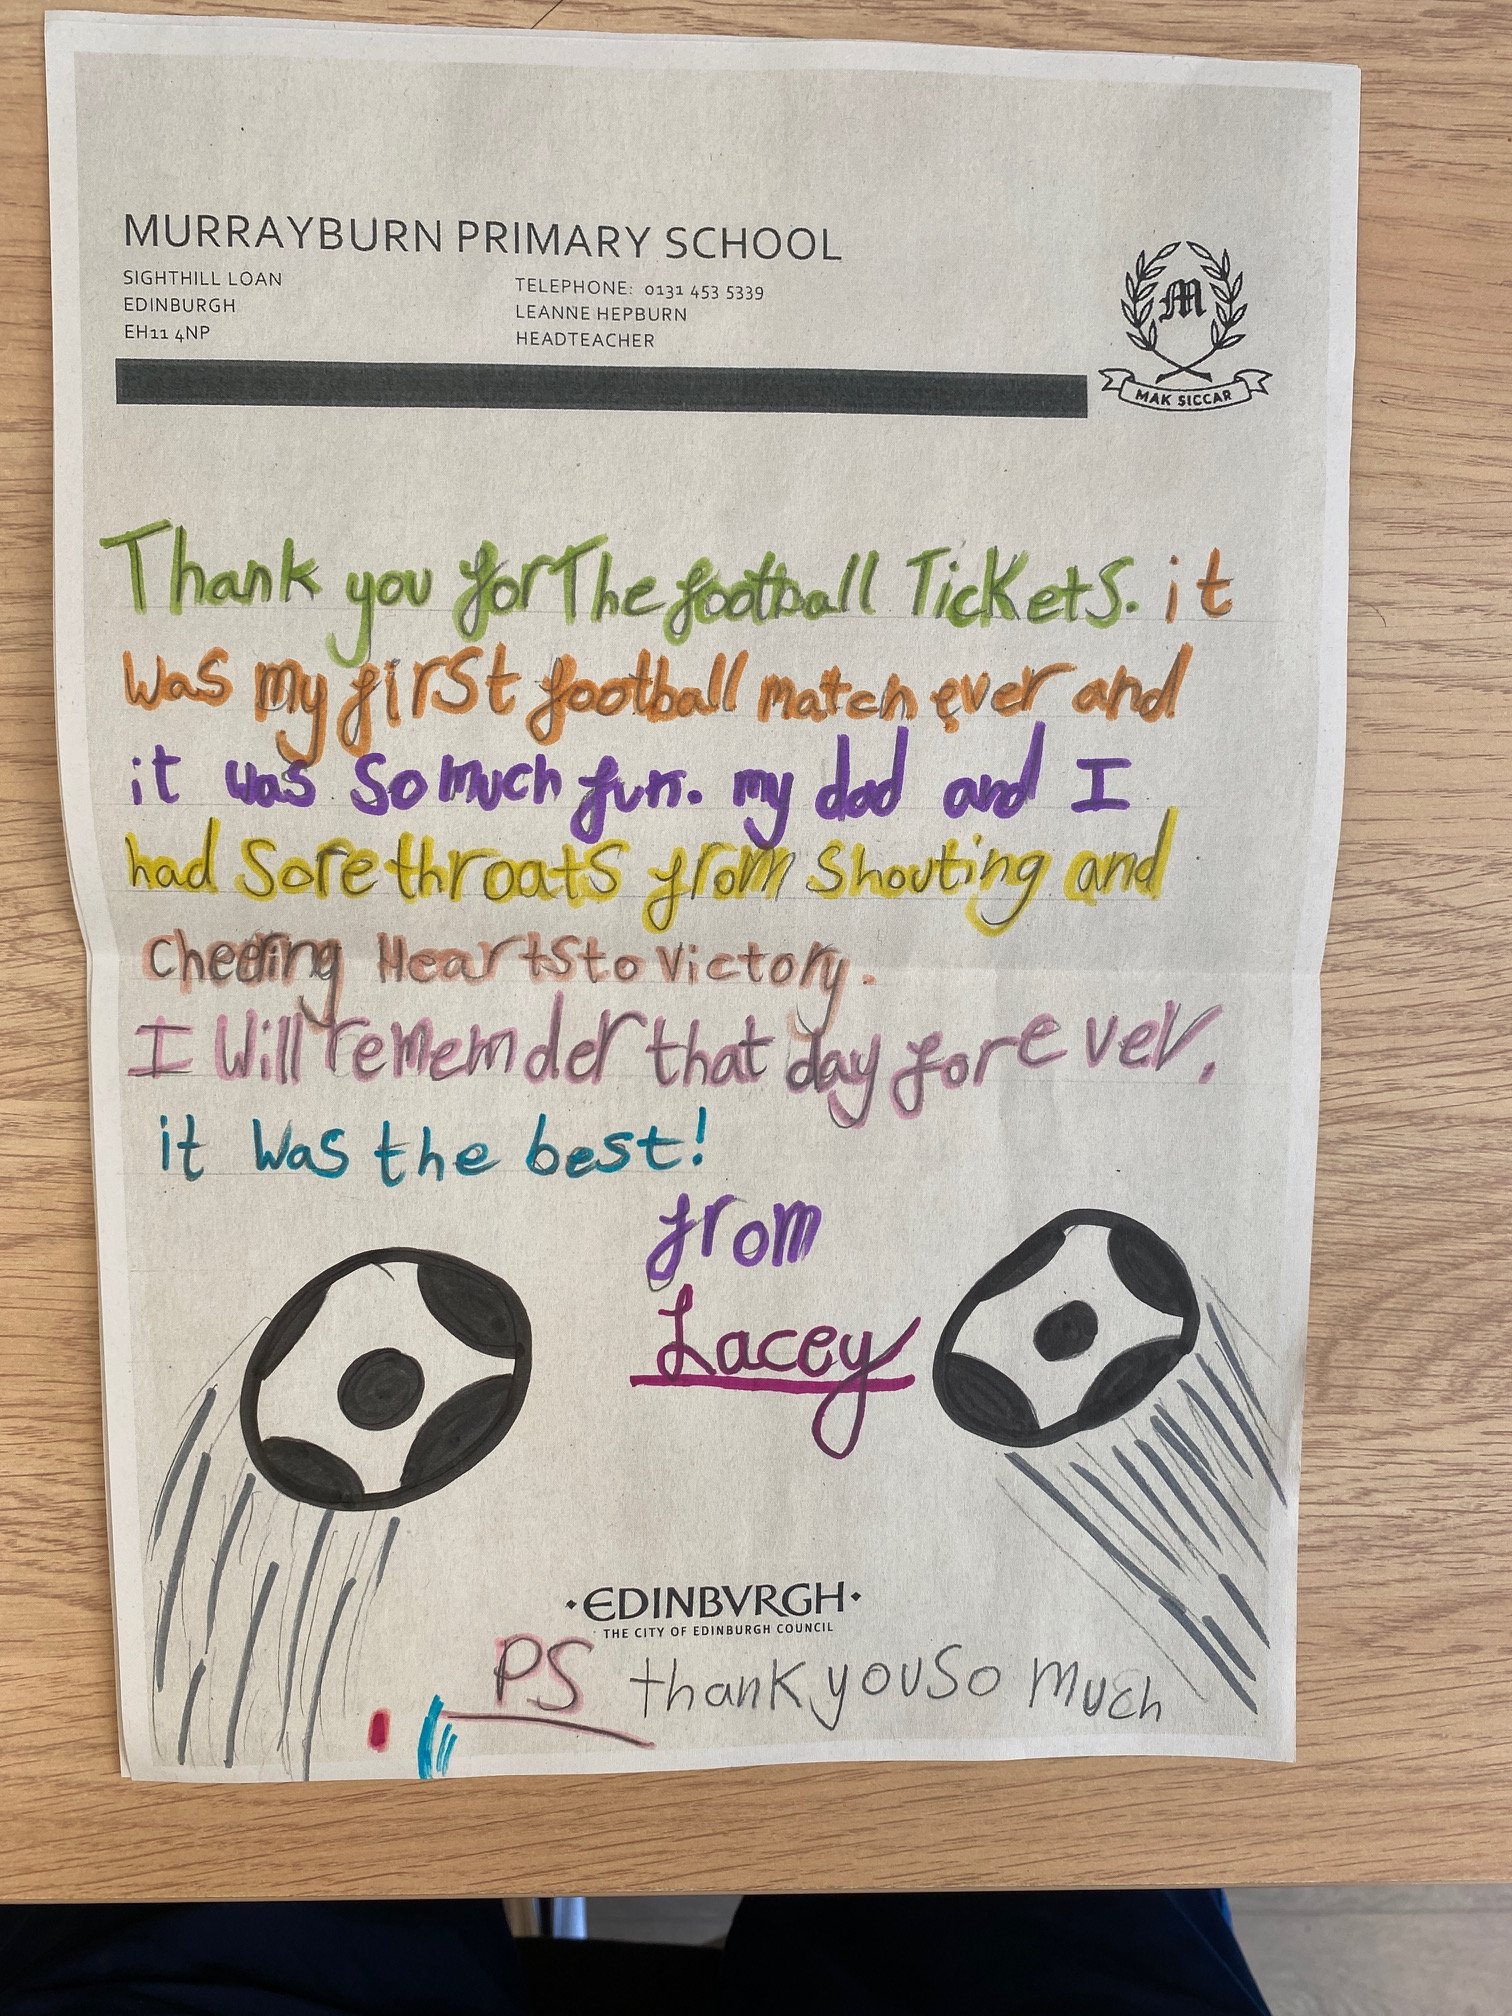 MURRAYBURN PRIMARY SCHOOL
SIGHTHILL LOAN
EDINBURGH
EH11 4NP
TELEPHONE: 0131 453 5339
LEANNE HEPBURN
HEADTEACHER
M
MAK SICCAR
Thank you for The football TicKets. it
was my first football match ever and
it was so much fun. my dad and I
had sore throats from shouting and
cheering Hearts to victory.
I will rememder that day forever.
it was the best!
from
Lacey
·EDINBVRGH·
THE CITY OF EDINBURGH COUNCIL
PS thank you so much